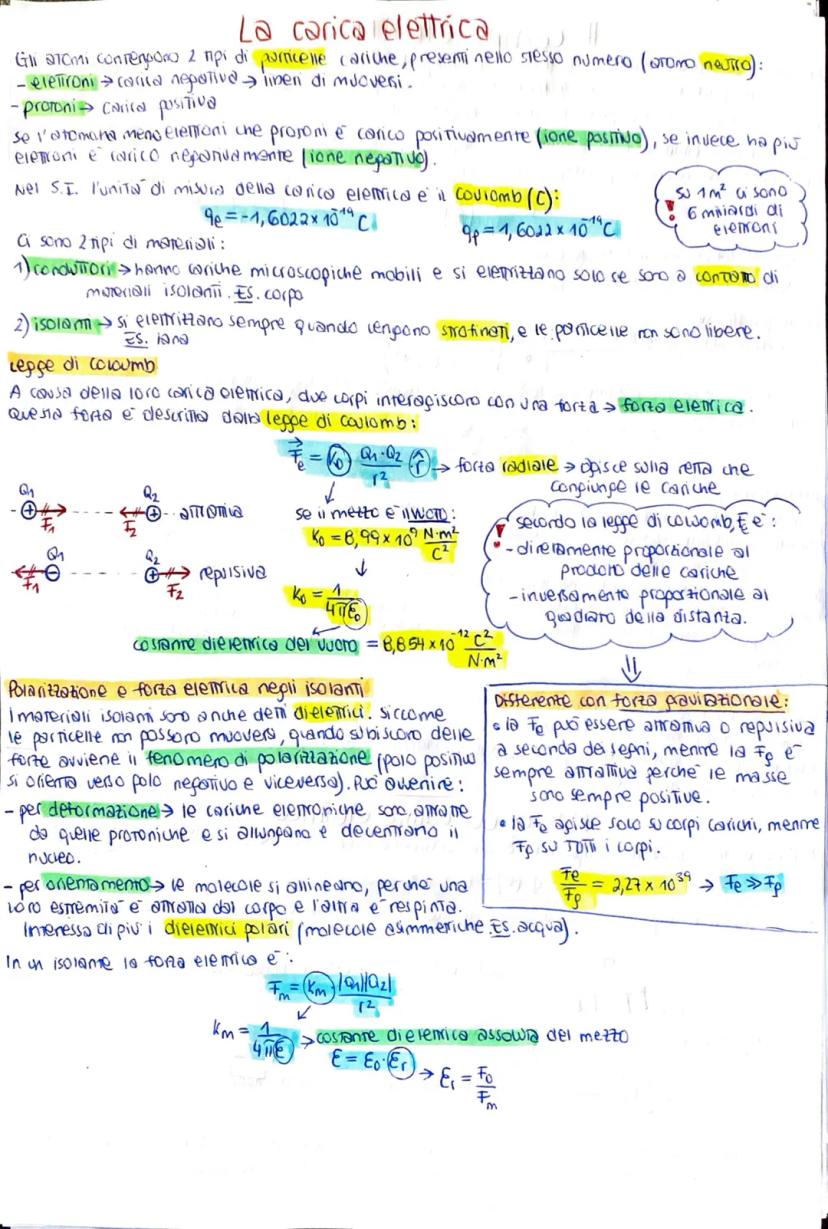 La carica elettrica
Gli atomi contengono 2 tipi di particelle cariche, presenti nello stesso numero (atomo neutro):
- elettroni → carica negativa → liberi di muoversi.
- protoni → carica positiva
se l'atomo ha meno elettroni che protoni è carico positivamente (ione positivo), se invece ha più
elettroni è carico negativamente (ione negativo).
Nel S.I. l'unità di misura della carica elettrica è il coulomb (C):
qe = -1,6022 x 10^-19 C    qp = 1,6022 x 10^-19 C
! su 1m² ci sono
6 miliardi di
elettroni
Ci sono 2 tipi di materiali:
1) conduttori → hanno cariche microscopiche mobili e si elettrizzano solo se sono a contatto di
materiali isolanti. Es. corpo
2) isolanti → si elettrizzano sempre quando vengono strofinati, e le particelle non sono libere.
Es. lana
Legge di coulomb
A causa della loro carica elettrica, due corpi interagiscono con una forza → forza elettrica.
Questa forza è descritta dalla legge di coulomb:
F⃗e = k0 Q1·Q2/r² r̂ → forza radiale → agisce sulla retta che
congiunge le cariche
Q1 Q2
⊕ ---- ⊕ attrattiva
F1 F2
Q1 Q2
⊖ ---- ⊕ repulsiva
F1 F2
se il mezzo è il vuoto:
k0 = 8,99 x 10^9 N·m²/C²
k0 = 1/4πε0
costante dielettrica del vuoto = 8,854 x 10^-12 C²/N·m²
! secondo la legge di coulomb, Fe è:
- direttamente proporzionale al
prodotto delle cariche
- inversamente proporzionale al
quadrato della distanza.
Polarizzazione e forza elettrica negli isolanti
I materiali isolanti sono anche detti dielettrici. siccome
le particelle non possono muoversi, quando subiscono delle
forze avviene il fenomeno di polarizzazione (polo positivo
si orienta verso polo negativo e viceversa). Può avvenire:
- per deformazione → le cariche elettroniche, sono attratte
da quelle protoniche e si allungano e decentrano il
nucleo.
- per orientamento → le molecole si allineano, perché una
loro estremità è attratta dal corpo e l'altra è respinta.
Interessa di più i dielettrici polari (molecole asimmeriche Es. acqua).
Differenze con forza gravitazionale:
• la Fe può essere attrattiva o repulsiva
a seconda dei segni, mentre la Fg è
sempre attrattiva perché le masse
sono sempre positive.
• la Fe agisce solo su corpi carichi, mentre
Fg su TUTTI i corpi.
Fe/Fg = 2,27 x 10^39 → Fe ≫ Fg
In un isolante la forza elettrica è:
Fm = km · |Q1||Q2|/r²
km = 1/4πε → costante dielettrica assoluta del mezzo
ε = ε0 · εr → εr = F0/Fm